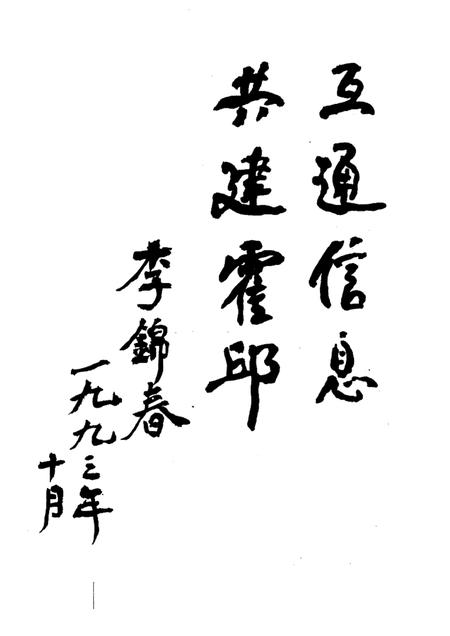 互通信息
共建霍邱
李錦春
一九九三年
十月